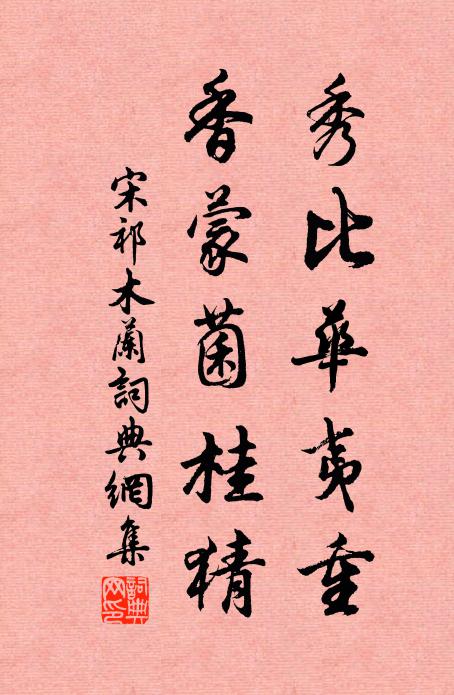 秀比華夷重
香蒙菌桂猜
宋祁木蘭詞典網集
詞典网印